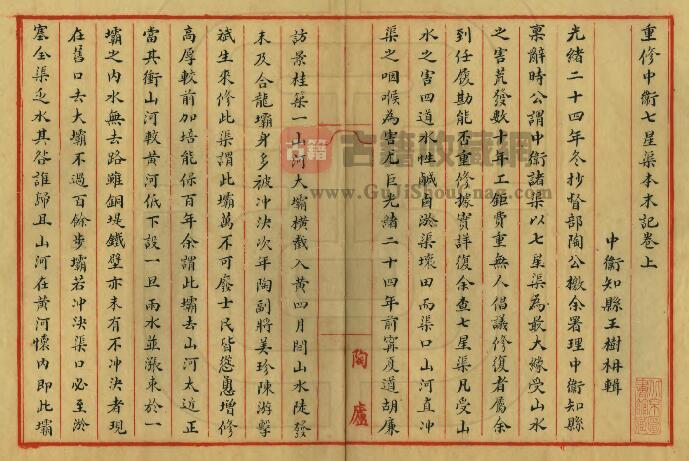 重修中衛七星渠本末記卷上
中衛知縣王樹枏輯
光緒二十四年冬抄督部陶公檄余署理中衛知縣
稟辭時公謂中衛諸渠以七星渠為最大緣受山水
之害荒廢數十年工鉅費重無人倡議修復者屬余
到任履勘能否重修據實詳復余查七星渠凡受山
水之害四道水性鹹鹵淤渠壞田而渠口山河直沖
渠之咽喉為害尤巨光緒二十四年前寗夏道胡廉
訪景桂築一山河大壩橫截入黃四月間山水陡發
未及合龍壩身多被沖決次年陶副將美珍陳游擊
斌生來修此渠謂此壩萬不可廢士民皆慫恿增修
高厚較前加培能保百年余謂此壩去山河太近正
當其衝山河較黃河低下設一旦兩水並漲束於一
壩之內水無去路雖銅堤鐵壁亦未有不沖決者現
在舊口去大壩不過百餘步壩若沖決渠口必至淤
塞全渠乏水其咎誰歸且山河在黃河懷內即此壩
陶廬
古籍
古籍收藏網
www.GuJiShouCang.com